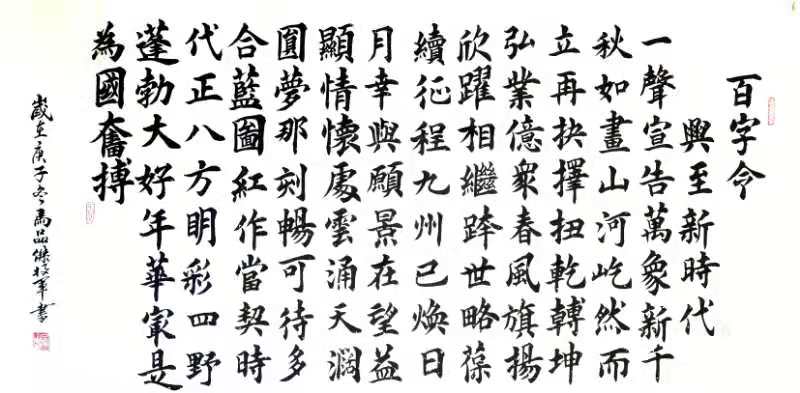 百字令
興至新時代
一聲宣告萬象新千
秋如畫山河屹然而
立再抉擇扭乾轉坤
弘業億衆春風旗揚
欣躍相繼跨世略葆
續征程九州已煥日
月幸與願景在望益
顯情懷處雲涌天濶
圓夢那刻暢可待多
合藍圖紅作當契時
代正八方明彩四野
蓬勃大好年華寔是
為國奮搏
歲在庚子冬馬品傑 書